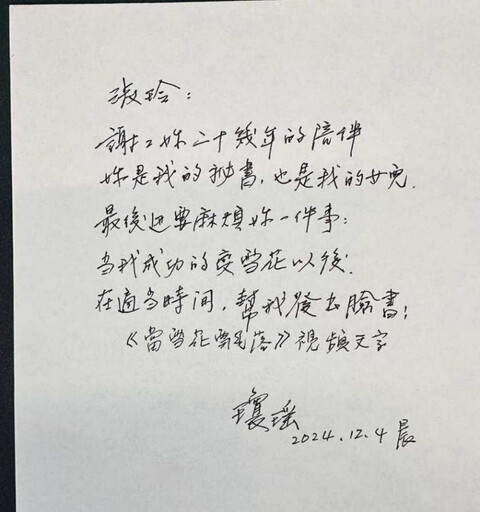 淑玲:
謝謝妳二十幾年的陪伴
妳是我的秘書,也是我的女兒.
最後還要麻煩妳一件事:
当我成功的变雪花以後.
在適当時间,幫我發出臉書:
《當雪花飄落》視頻文字
瓊瑤
2024.12.4 晨